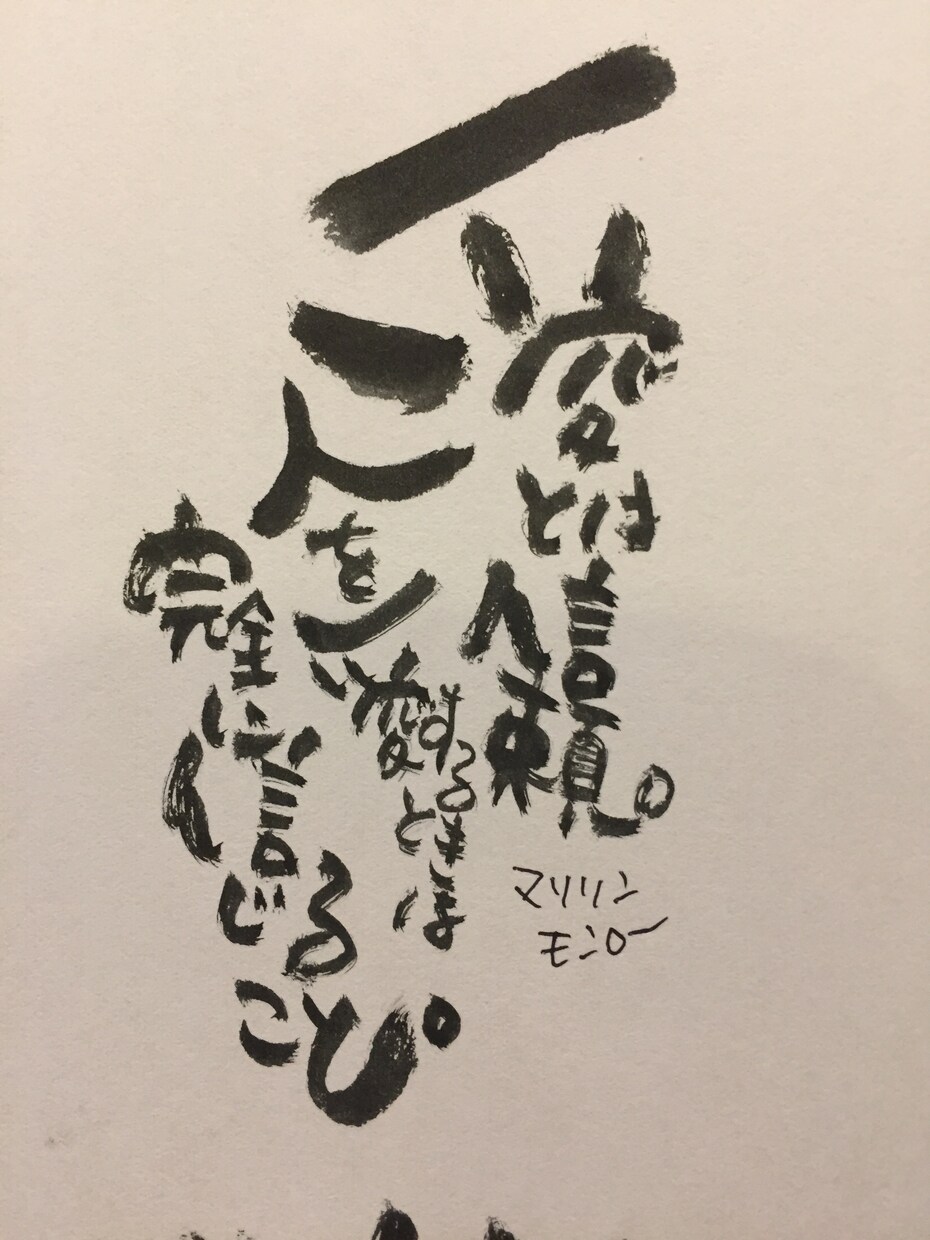 愛とは信頼。
人を愛するときは
完全に信じること。
マリリン
モンロー